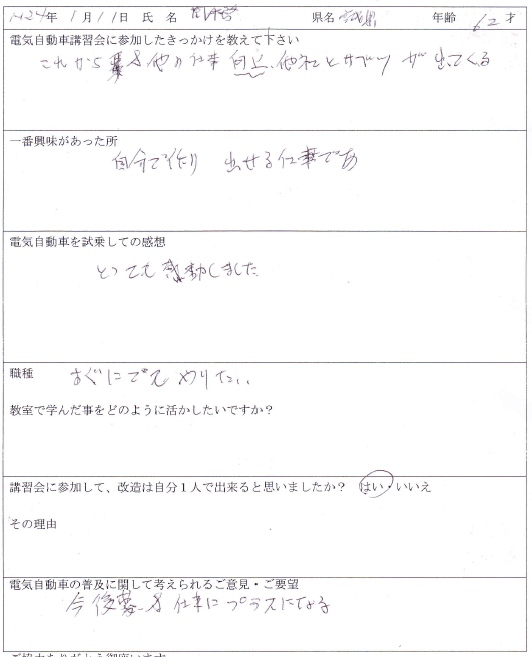 H24年 1月11日 氏 名 県名 茨城 年齢 62才
電気自動車講習会に参加したきっかけを教えて下さい
これから 他の仕事 自立、他社と が出てくる
一番興味があった所
自分で作り 出せる仕事であ
電気自動車を試乗しての感想
とっても感動しました
職種 すぐにでも やりたい
教室で学んだ事をどのように活かしたいですか？
講習会に参加して、改造は自分１人で出来ると思いましたか？ はい・いいえ
その理由
電気自動車の普及に関して考えられるご意見・ご要望
今後 仕事にプラスになる
ご協力ありがとう御座います